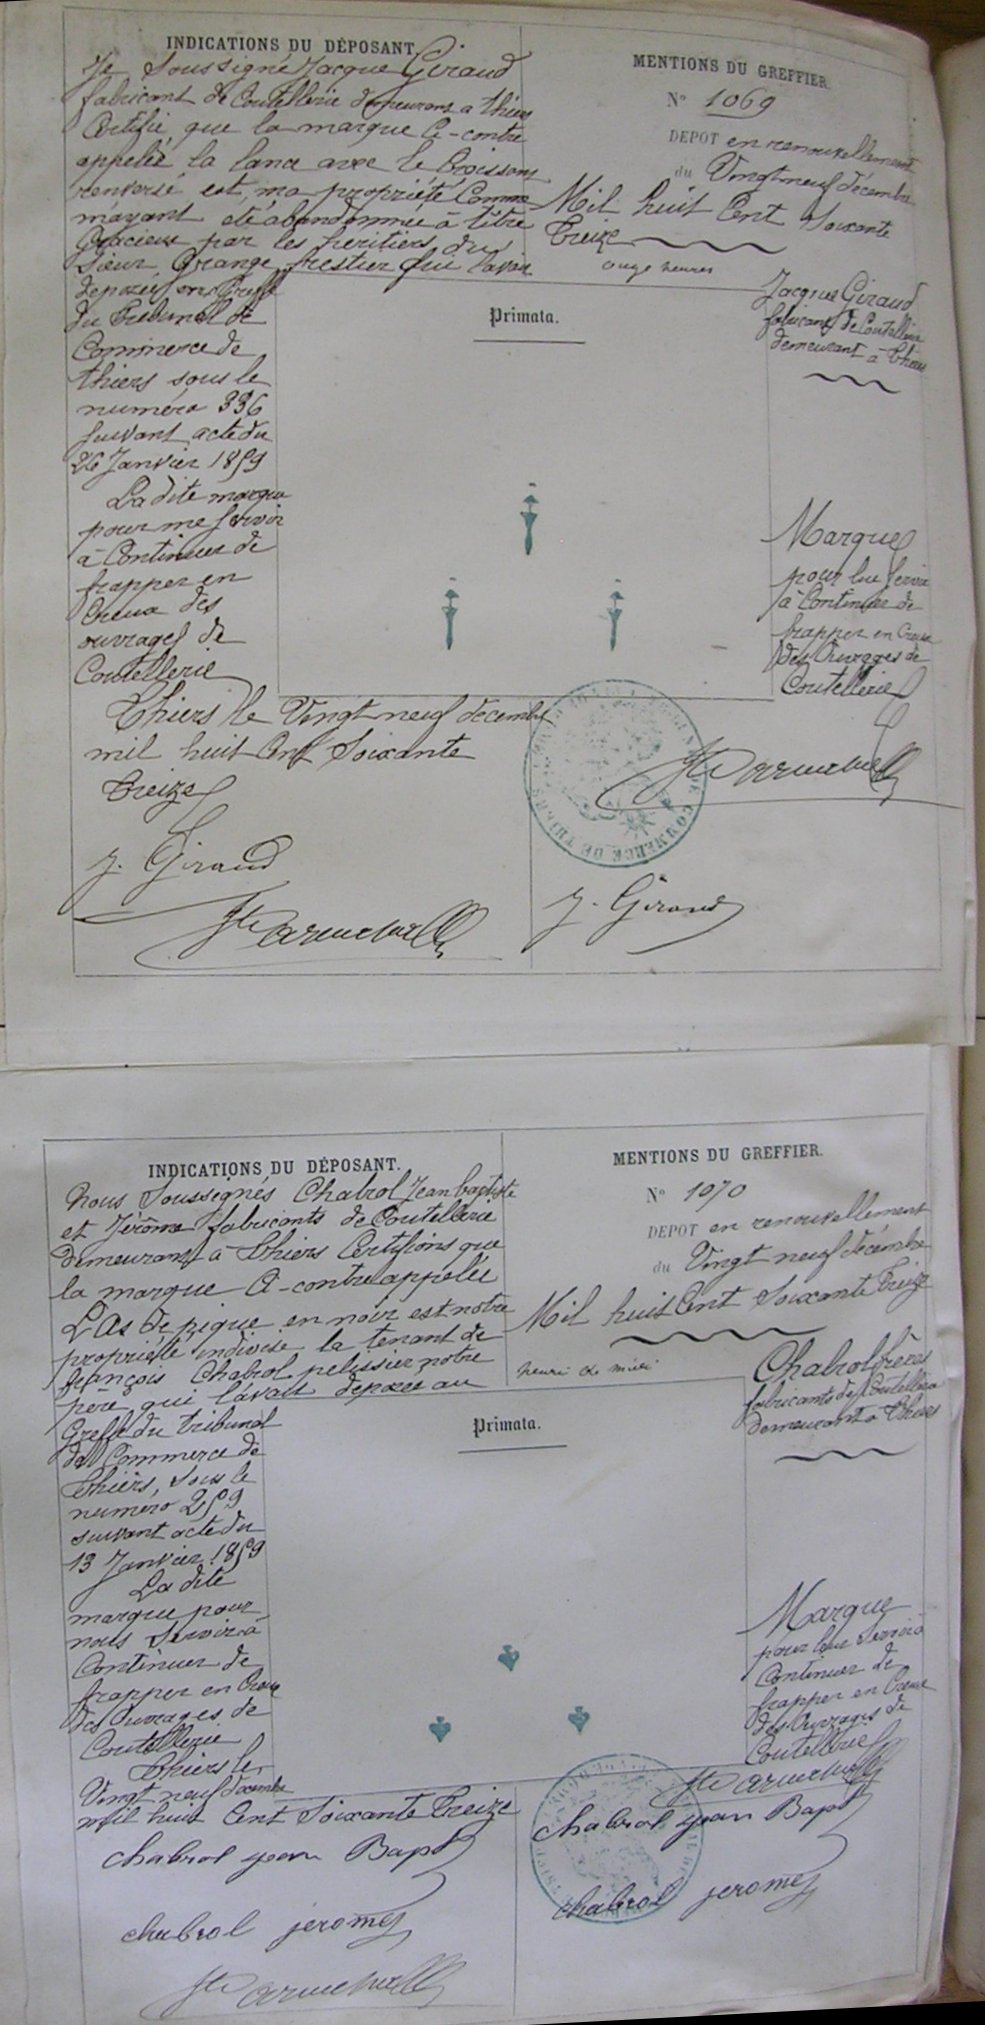 INDICATIONS DU DÉPOSANT.
Je Soussigné Jacque Giraud
fabricant de Coutellerie demeurant a thiers
Certifie, que la marque Ci-contre
appelée la lance avec le Croissant
renversé est ma propriété Comme
m'ayant été abandonnée à titre
Gracieux par les héritiers du
Sieur Grange frestier qui l'avait
deposée au Greffe
du Tribunal de
Commerce de
thiers sous le
numéro 336
suivant acte du
26 Janvier 1859
La dite marque
pour me servir
à Continuer de
frapper en
Creux des
ouvrages de
Coutellerie
Thiers le Vingt neuf decembre
mil huit Cent Soixante
Treize
J. Giraud
MENTIONS DU GREFFIER.
N° 1069
DEPOT en renouvellement
du Vingt neuf décembre
Mil huit Cent Soixante
Treize
onze heures
Jacque Giraud
fabricant de Coutellerie
demeurant à Thiers
Primata.
Marque
pour lui servir
à Continuer de
frapper en Creux
des Ouvrages de
Coutellerie
J. Giraud
INDICATIONS DU DÉPOSANT.
Nous Soussignés Chabrol Jean baptiste
et Jérôme fabricants de Coutellerie
demeurant à Thiers Certifions que
la marque Ci-contre appelée
L'As de pique en noir est notre
propriété indivise la tenant de
françois Chabrol pelissier notre
père qui l'avait déposée au
Greffe du tribunal
de Commerce de
Thiers, sous le
numéro 259
suivant acte du
13 Janvier 1859
La dite
marque pour
nous Servir à
Continuer de
frapper en Creux
des Ouvrages de
Coutellerie
Thiers le
Vingt neuf decembre
mil huit Cent Soixante Treize
Chabrol jean Bapt
chabrol jerome
MENTIONS DU GREFFIER.
N° 1070
DEPOT en renouvellement
du Vingt neuf décembre
Mil huit Cent Soixante Treize
heure de midi
Chabrol frères
fabricants de Coutellerie
demeurant à Thiers
Primata.
Marque
pour leur Servir à
Continuer de
frapper en Creux
des Ouvrages de
Coutellerie
chabrol jean Bapt
chabrol jerome